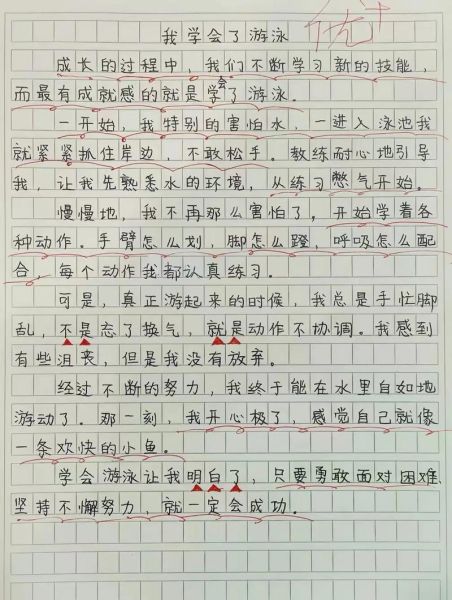 我学会了游泳
优+
成长的过程中，我们不断学习新的技能，
而最有成就感的就是学会了游泳。
一开始，我特别的害怕水，一进入泳池我
就紧紧抓住岸边，不敢松手。教练耐心地引导
我，让我先熟悉水的环境，从练习憋气开始。
慢慢地，我不再那么害怕了，开始学着各
种动作。手臂怎么划，脚怎么蹬，呼吸怎么配
合，每个动作我都认真练习。
可是，真正游起来的时候，我总是手忙脚
乱，不是忘了换气，就是动作不协调。我感到
有些沮丧，但是我没有放弃。
经过不断的努力，我终于能在水里自如地
游动了。那一刻，我开心极了，感觉自己就像
一条欢快的小鱼。
学会游泳让我明白了，只要勇敢面对困难，
坚持不懈努力，就一定会成功。